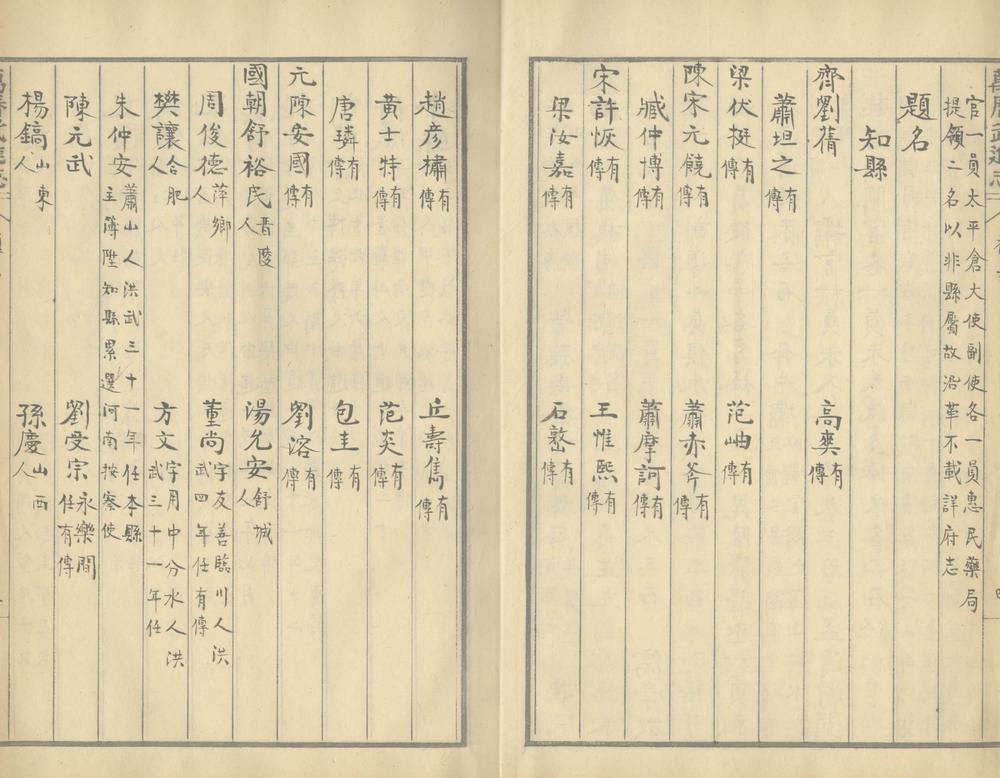 官一員太平倉大使副使各一員惠民藥局
提領二名以非縣屬故沿革不載詳府志
題名
知縣
齊劉蒨 高爽有傳
蕭坦之有傳
梁伏挺有傳 范岫有傳
陳宋元饒有傳 蕭赤斧有傳
臧仲博有傳 蕭摩訶有傳
宋許恢有傳 王惟熙有傳
梁汝嘉有傳 石憝有傳
趙彥橚有傳 丘壽雋有傳
黃士特有傳 范炎有傳
唐璘有傳 包圭有傳
元陳安國有傳 劉溶有傳
國朝舒裕民晋陵人 湯允安舒城人
周俊德萍鄉人 董尚字友善臨川人洪武四年任有傳
樊讓合肥人 方文字月中分水人洪武三十一年任
朱仲安蕭山人洪武三十一年任本縣主簿陞知縣累選河南按察使
陳元武 劉受宗永樂間任有傳
楊鎬山東人 孫慶山西人